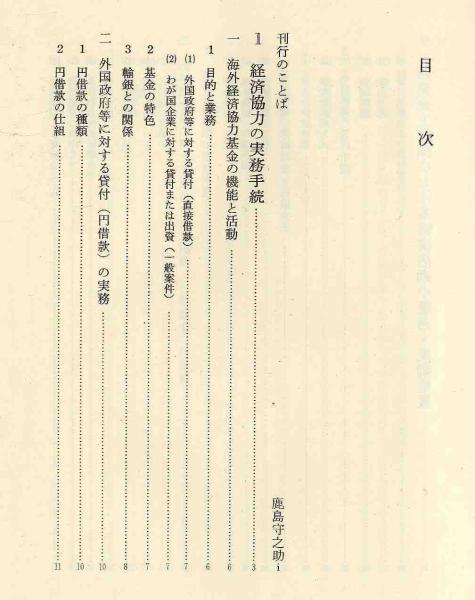 目次
刊行のことば 鹿島守之助 i
1 経済協力の実務手続 3
一 海外経済協力基金の機能と活動 6
1 目的と業務 6
(1) 外国政府等に対する貸付(直接借款) 7
(2) わが国企業に対する貸付または出資(一般案件) 7
2 基金の特色 7
3 輸銀との関係 8
二 外国政府等に対する貸付(円借款)の実務 10
1 円借款の種類 10
2 円借款の仕組 11